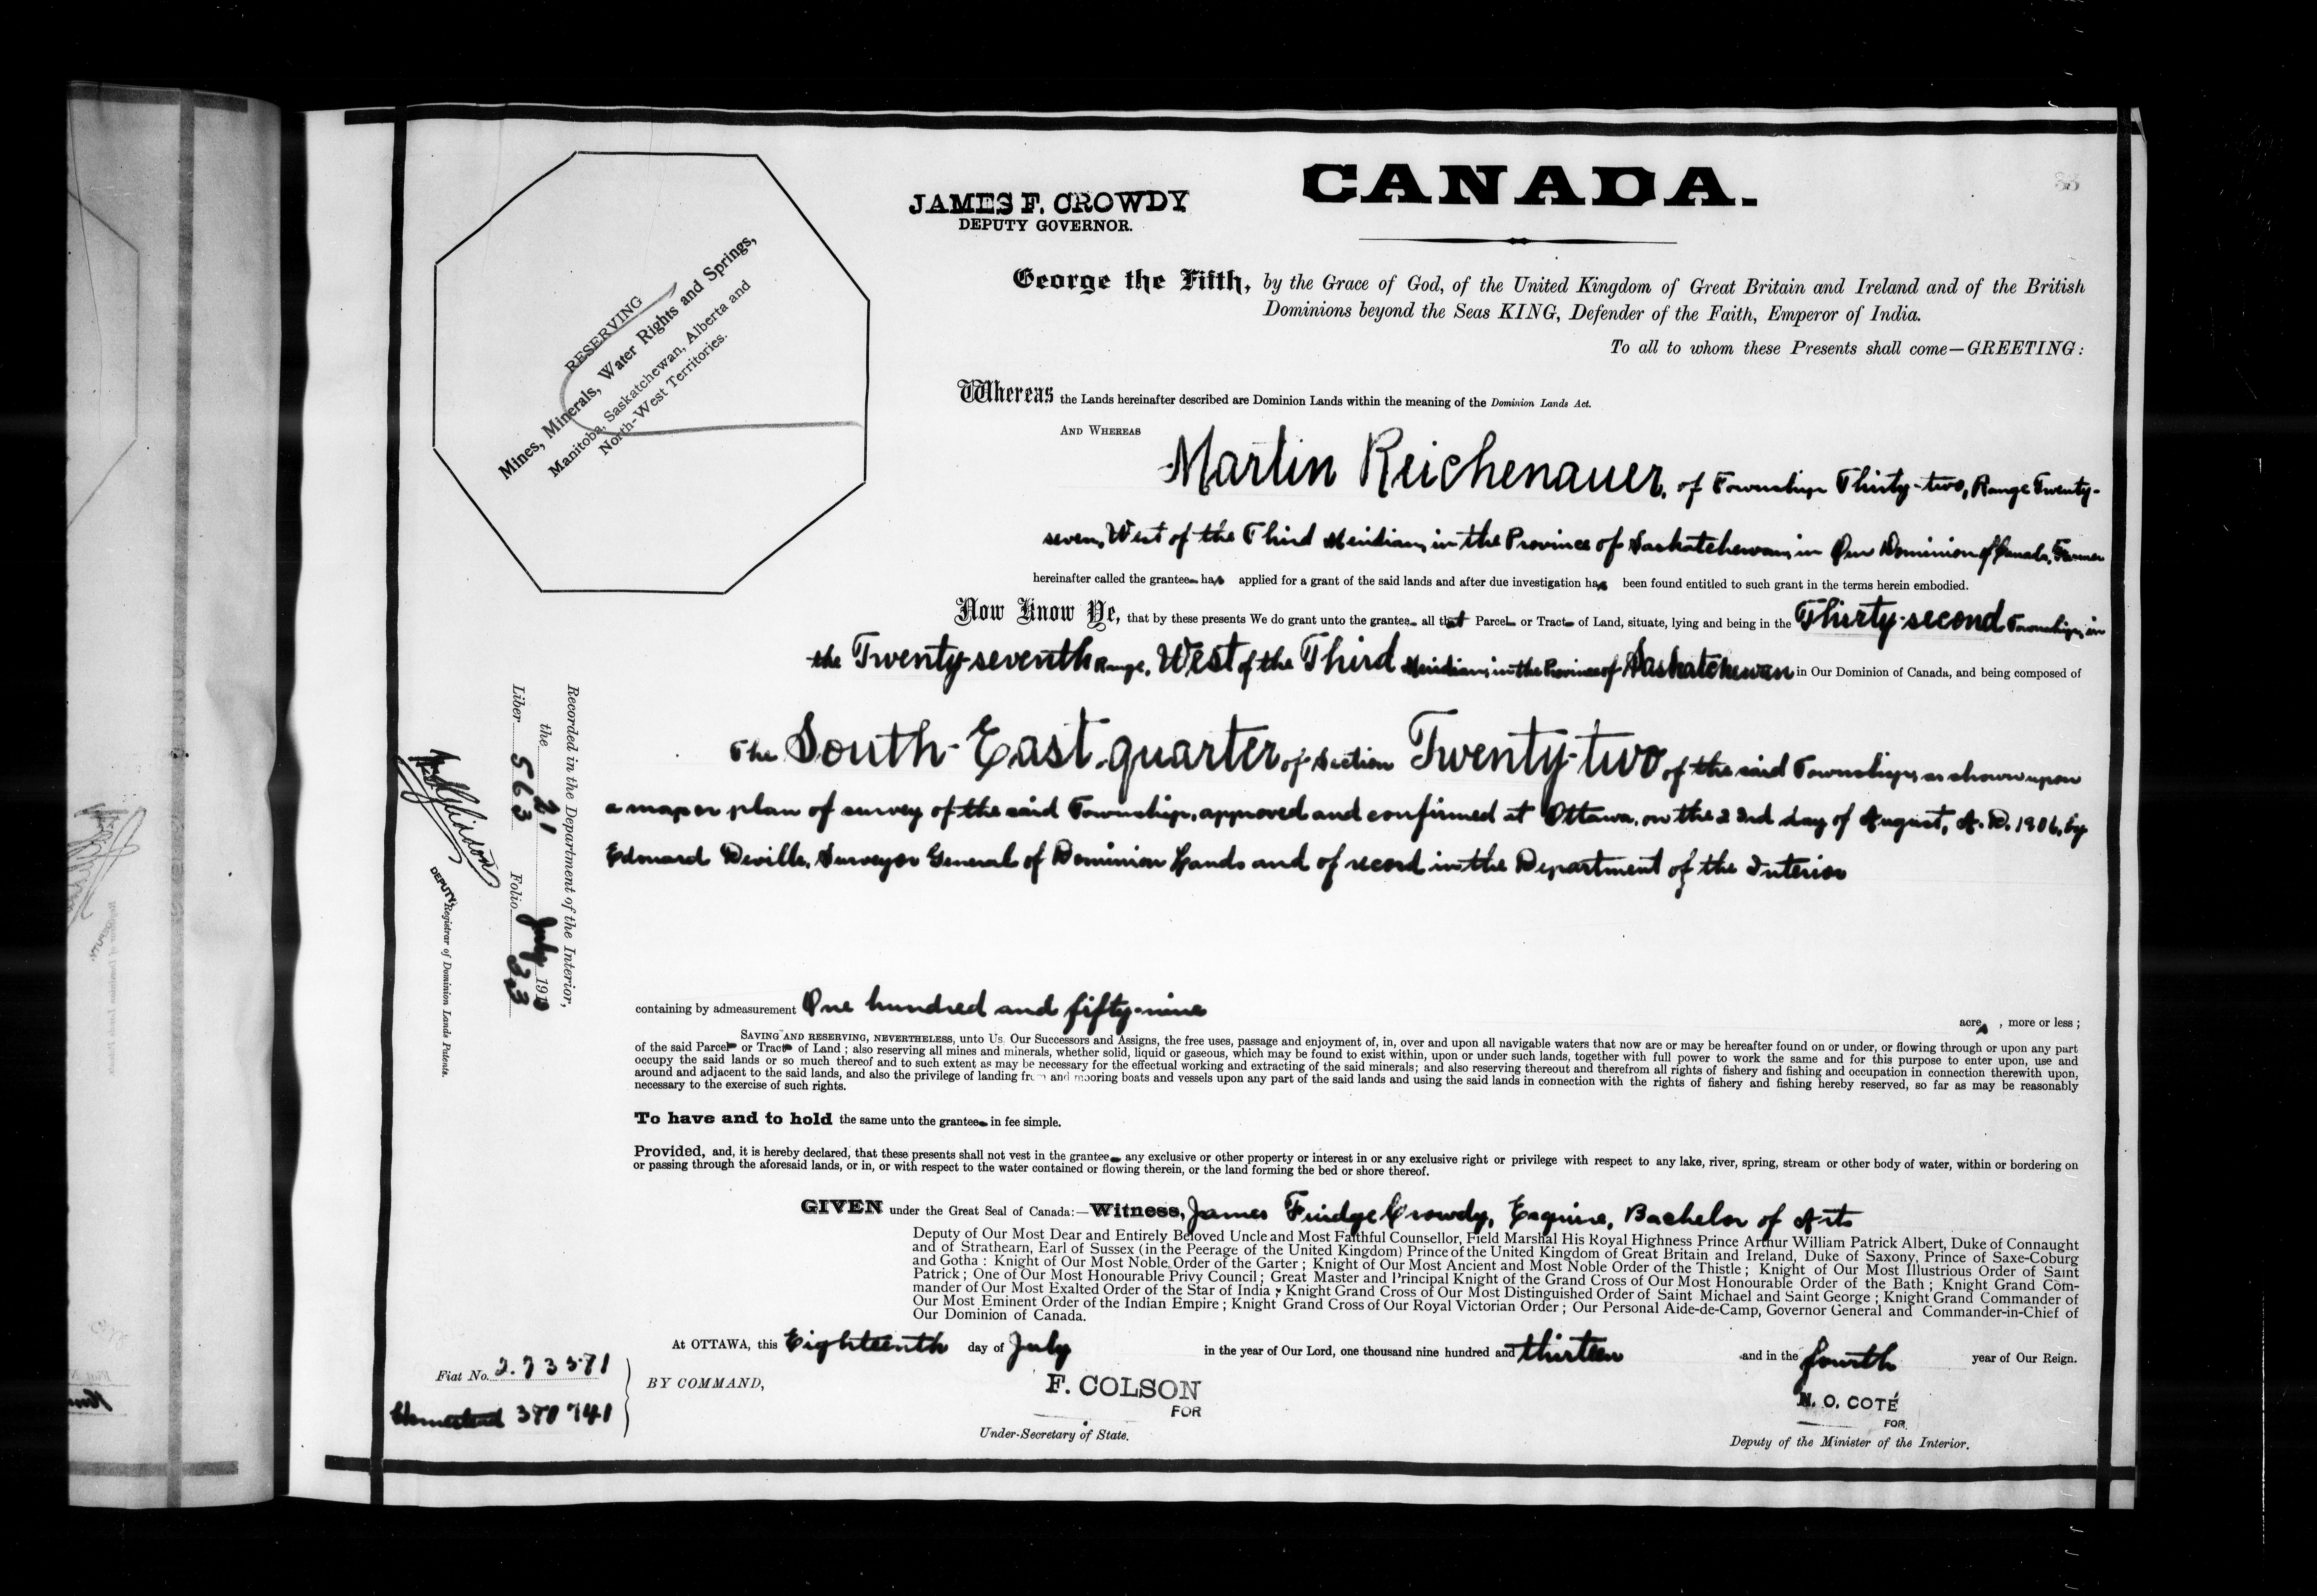 CANADA.
33
JAMES F. CROWDY
DEPUTY GOVERNOR.
RESERVING
Mines, Minerals, Water Rights and Springs,
Manitoba, Saskatchewan, Alberta and
North-West Territories.
George the Fifth, by the Grace of God, of the United Kingdom of Great Britain and Ireland and of the British
Dominions beyond the Seas KING, Defender of the Faith, Emperor of India.
To all to whom these Presents shall come—GREETING:
Whereas the Lands hereinafter described are Dominion Lands within the meaning of the Dominion Lands Act.
AND WHEREAS
Martin Reichenauer, of Township Thirty-two, Range Twenty-
seven, West of the Third Meridian, in the Province of Saskatchewan, in Our Dominion of Canada, Farmer
hereinafter called the grantee has applied for a grant of the said lands and after due investigation has been found entitled to such grant in the terms herein embodied.
Now Know Ye, that by these presents We do grant unto the grantee all that Parcel or Tract of Land, situate, lying and being in the Thirty-second Township, in
the Twenty-seventh Range, West of the Third Meridian, in the Province of Saskatchewan in Our Dominion of Canada, and being composed of
The South-East quarter of Section Twenty-two of the said Township, as shown upon
a map or plan of survey of the said Township, approved and confirmed at Ottawa, on the 23rd day of August, A. D. 1906, by
Edouard Deville, Surveyor General of Dominion Lands and of record in the Department of the Interior
containing by admeasurement One hundred and fifty-nine
acres, more or less;
SAVING AND RESERVING, NEVERTHELESS, unto Us, Our Successors and Assigns, the free uses, passage and enjoyment of, in, over and upon all navigable waters that now are or may be hereafter found on or under, or flowing through or upon any part
of the said Parcel or Tract of Land; also reserving all mines and minerals, whether solid, liquid or gaseous, which may be found to exist within, upon or under such lands, together with full power to work the same and for this purpose to enter upon, use and
occupy the said lands or so much thereof and to such extent as may be necessary for the effectual working and extracting of the said minerals; and also reserving thereout and therefrom all rights of fishery and fishing and occupation in connection therewith upon,
around and adjacent to the said lands, and also the privilege of landing from and mooring boats and vessels upon any part of the said lands and using the said lands in connection with the rights of fishery and fishing hereby reserved, so far as may be reasonably
necessary to the exercise of such rights.
To have and to hold the same unto the grantee in fee simple.
Provided, and, it is hereby declared, that these presents shall not vest in the grantee any exclusive or other property or interest in or any exclusive right or privilege with respect to any lake, river, spring, stream or other body of water, within or bordering on
or passing through the aforesaid lands, or in, or with respect to the water contained or flowing therein, or the land forming the bed or shore thereof.
GIVEN under the Great Seal of Canada:—Witness, James Fuidge Crowdy, Esquire, Bachelor of Arts
Deputy of Our Most Dear and Entirely Beloved Uncle and Most Faithful Counsellor, Field Marshal His Royal Highness Prince Arthur William Patrick Albert, Duke of Connaught
and of Strathearn, Earl of Sussex (in the Peerage of the United Kingdom) Prince of the United Kingdom of Great Britain and Ireland, Duke of Saxony, Prince of Saxe-Coburg
and Gotha: Knight of Our Most Noble Order of the Garter; Knight of Our Most Ancient and Most Noble Order of the Thistle; Knight of Our Most Illustrious Order of Saint
Patrick; One of Our Most Honourable Privy Council; Great Master and Principal Knight of the Grand Cross of Our Most Honourable Order of the Bath; Knight Grand Com-
mander of Our Most Exalted Order of the Star of India; Knight Grand Cross of Our Most Distinguished Order of Saint Michael and Saint George; Knight Grand Commander of
Our Most Eminent Order of the Indian Empire; Knight Grand Cross of Our Royal Victorian Order; Our Personal Aide-de-Camp, Governor General and Commander-in-Chief of
Our Dominion of Canada.
At OTTAWA, this Eighteenth day of July in the year of Our Lord, one thousand nine hundred and thirteen and in the fourth year of Our Reign.
BY COMMAND,
F. COLSON
FOR
Under-Secretary of State.
N. O. COTÉ
FOR
Deputy of the Minister of the Interior.
Fiat No. 273371
Homestead 370741
Recorded in the Department of the Interior,
the 21 July 1913
Liber 563 Folio 33
DEPUTY Registrar of Dominion Lands Patents.